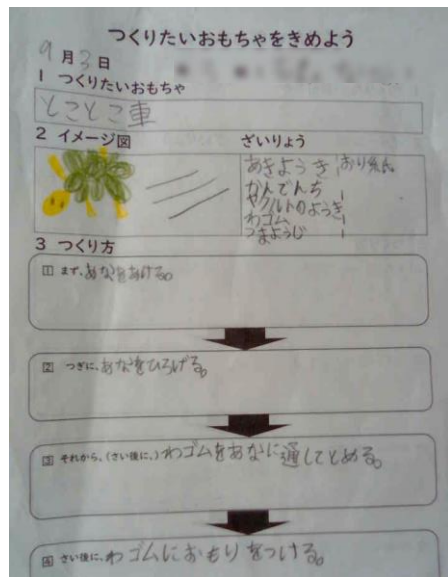 つくりたいおもちゃをきめよう
9月3日
1 つくりたいおもちゃ
とことこ車
2 イメージ図
ざいりょう
あきようき おり紙
かんでんち 1
ヤクルトのようき
わゴム 1
つまようじ 1
3 つくり方
1 まず、あなをあける。
2 つぎに、あなをひろげる。
3 それから、(さい後に、)わゴムをあなに通してとめる。
4 さい後に、わゴムにおもりをつける。